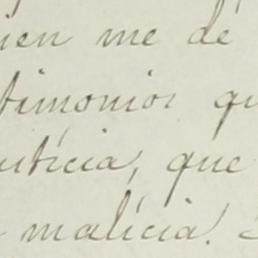 uien me dé
timonios qu
usticia, que
malicia.